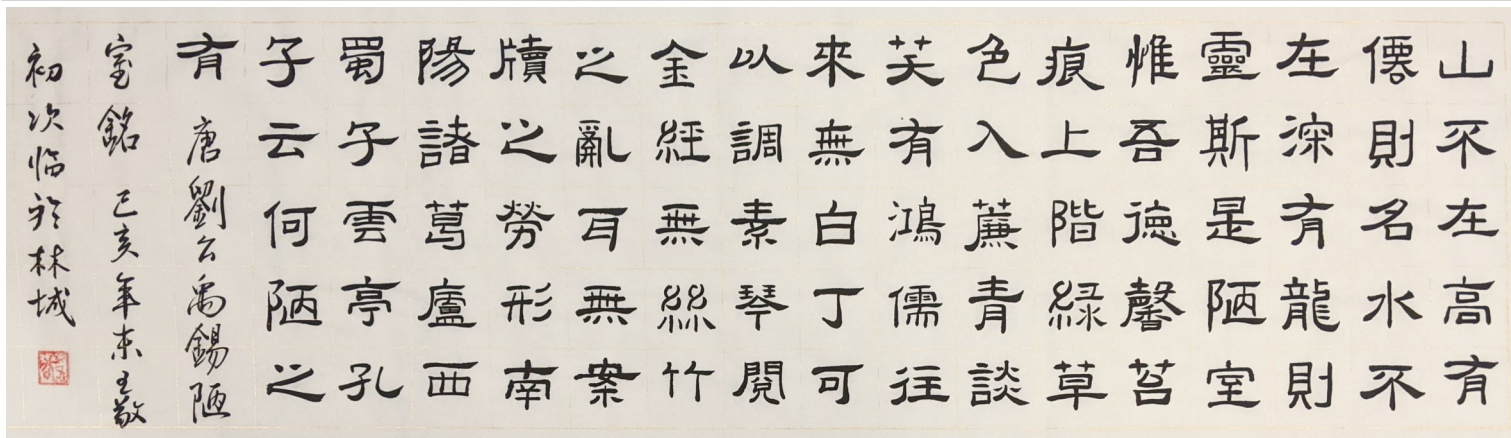 山不在高有
僊則名水不
在深有龍則
靈斯是陋室
惟吾德馨苔
痕上階緑草
色入薕青談
笑有鴻儒往
來無白丁可
以調素琴閱
金經無絲竹
之亂耳無案
牘之勞形南
陽諸葛廬西
蜀子雲亭孔
子云何陋之
有 唐劉公禹錫陋
室銘 己亥年末王敬
初次临於林城